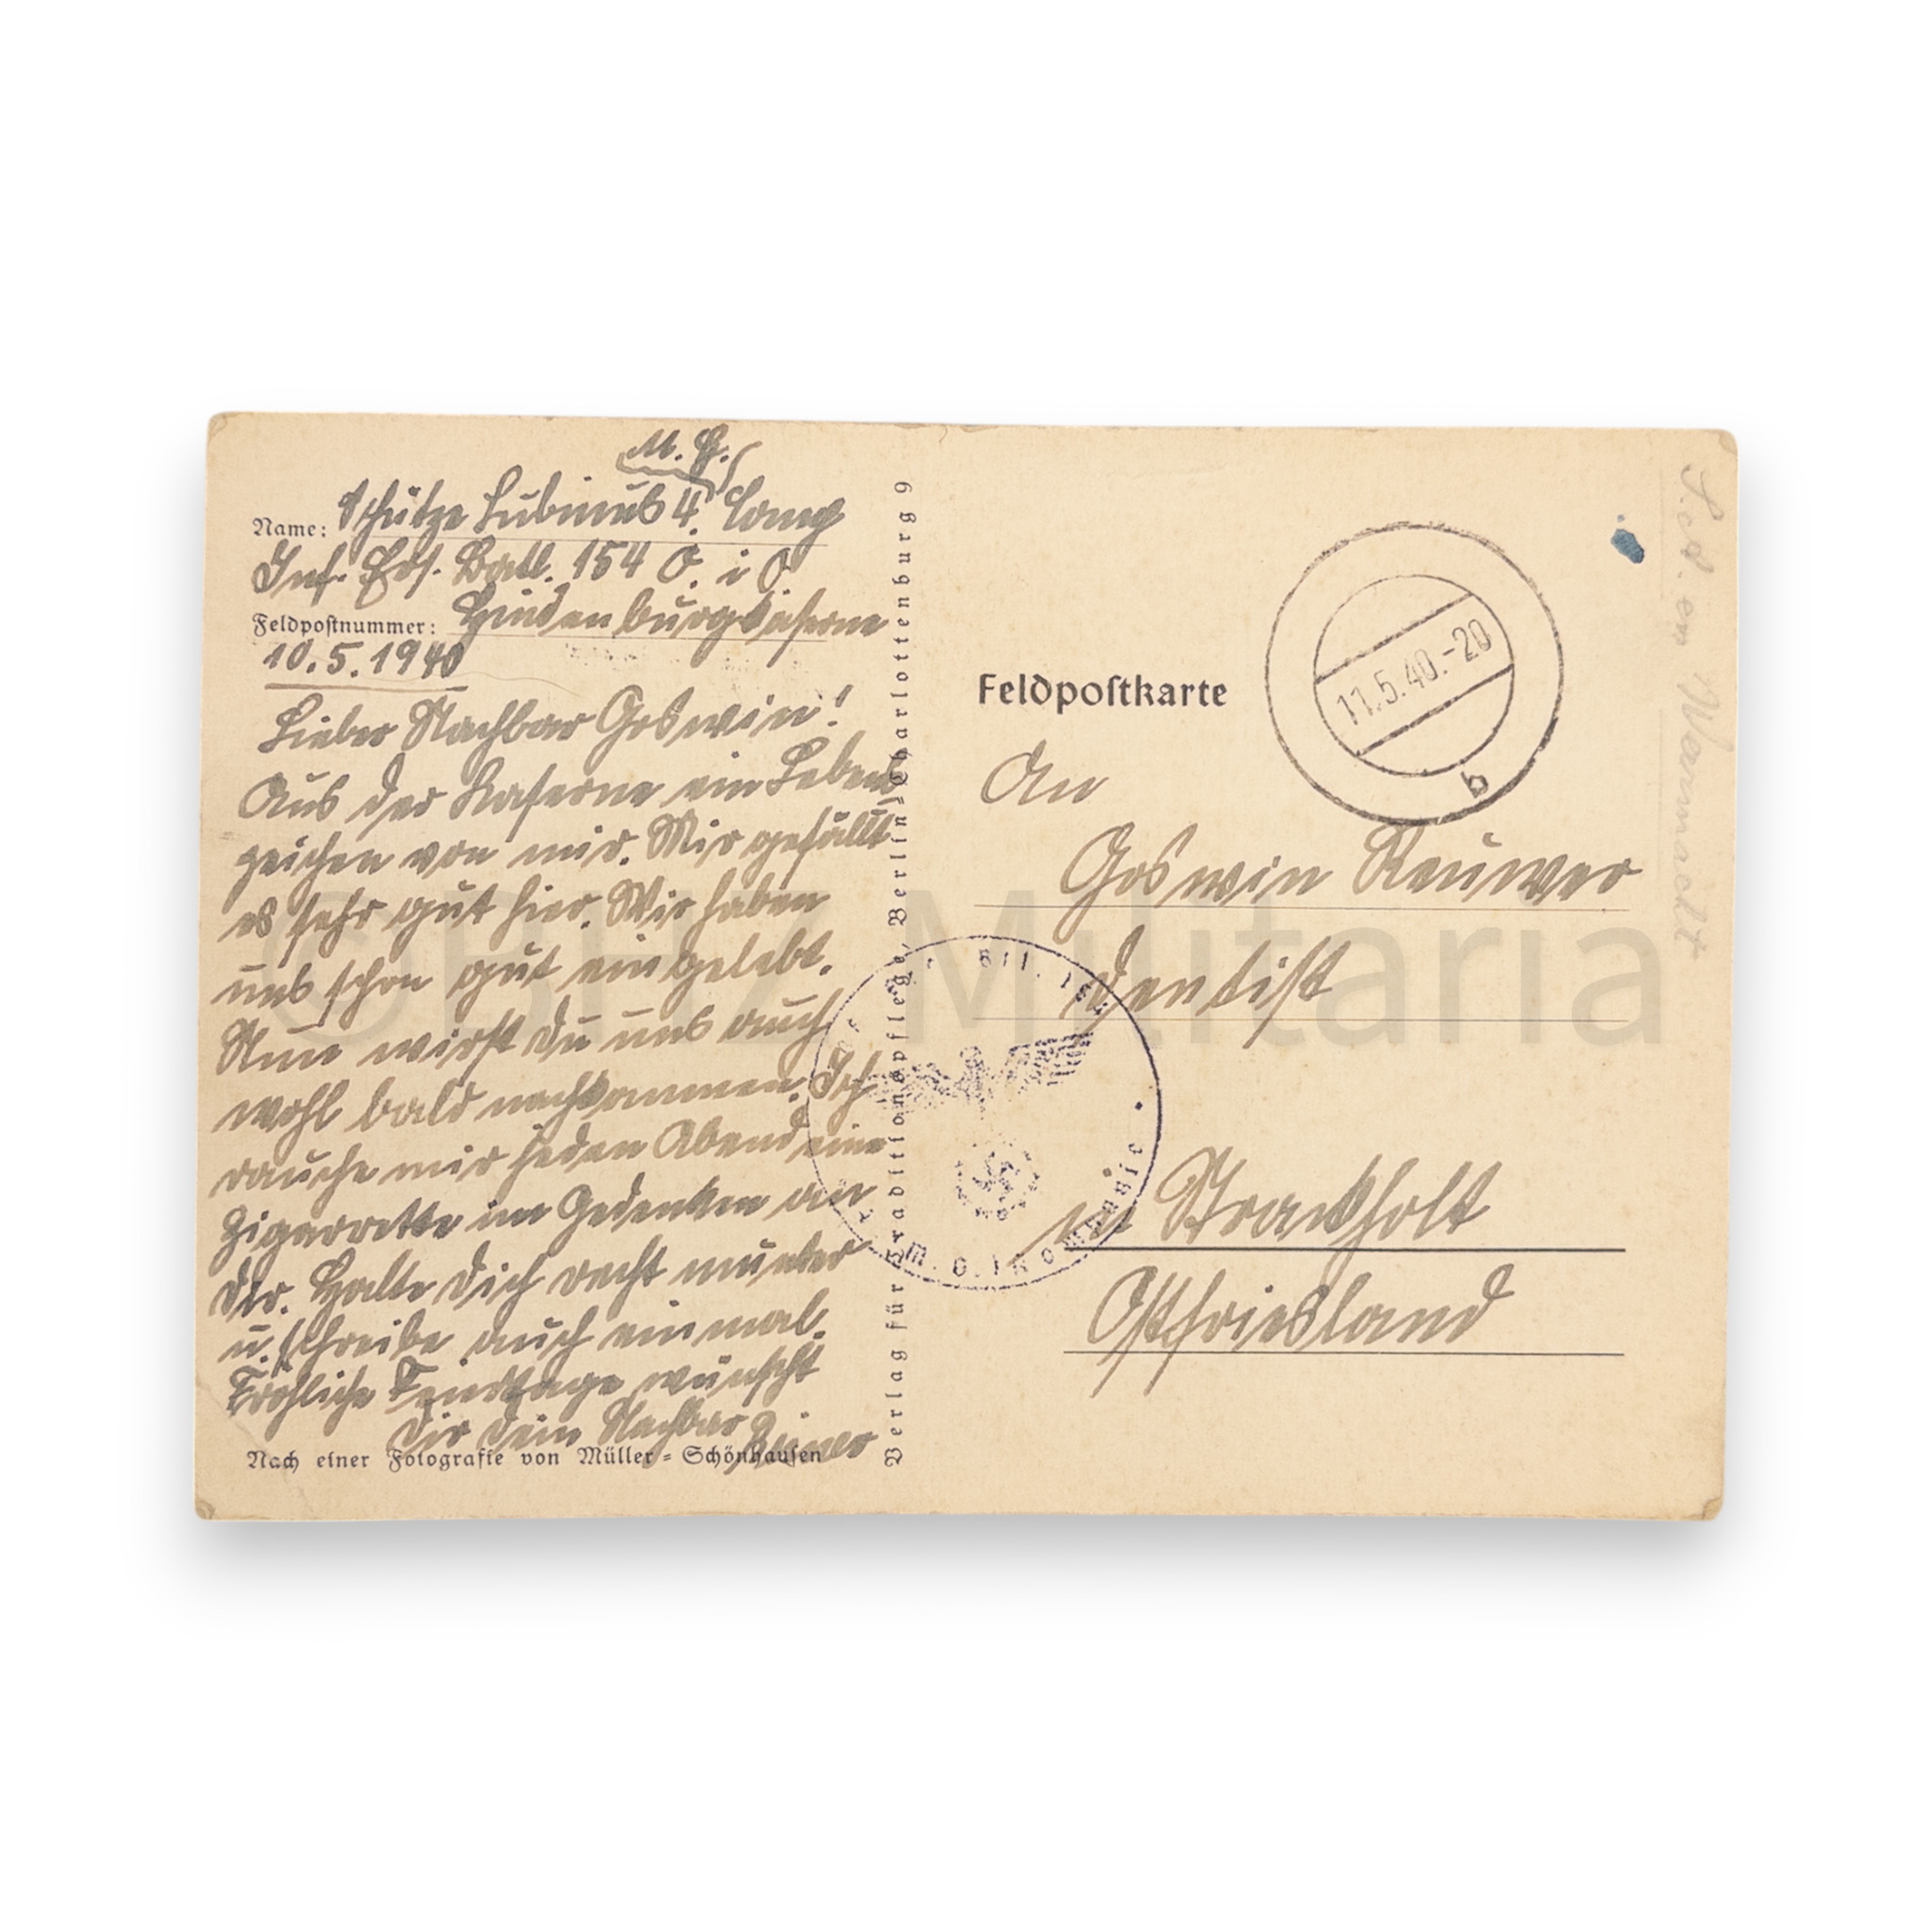 M. G.
Name: Schütze Lubinus 4. Comp
Inf. Ers. Batl. 154 O. i O
Feldpostnummer: Hindenburgkaserne
10.5.1940
Lieber Nachbar Goswin!
Aus der Kaserne ein Lebens
zeichen von mir. Mir gefällt
es sehr gut hier. Wir haben
uns schon gut eingelebt.
Nun wirst Du uns auch
wohl bald nachkommen. Ich
rauche mir jeden Abend eine
Zigarrette im Gedenken an
Dir. Halte Dich recht munter
u. schreibe auch einmal.
Fröhliche Festtage wünscht
Dir Dein Nachbar
Nach einer Fotografie von Müller-Schönhausen
Verlag für Traditionspflege, Berlin-Charlottenburg 9
Feldpostkarte
11.5.40.-20
b
An
Goswin Reuwer
Dentist
in Strackholt
Ostfriesland
©BHZ Militaria